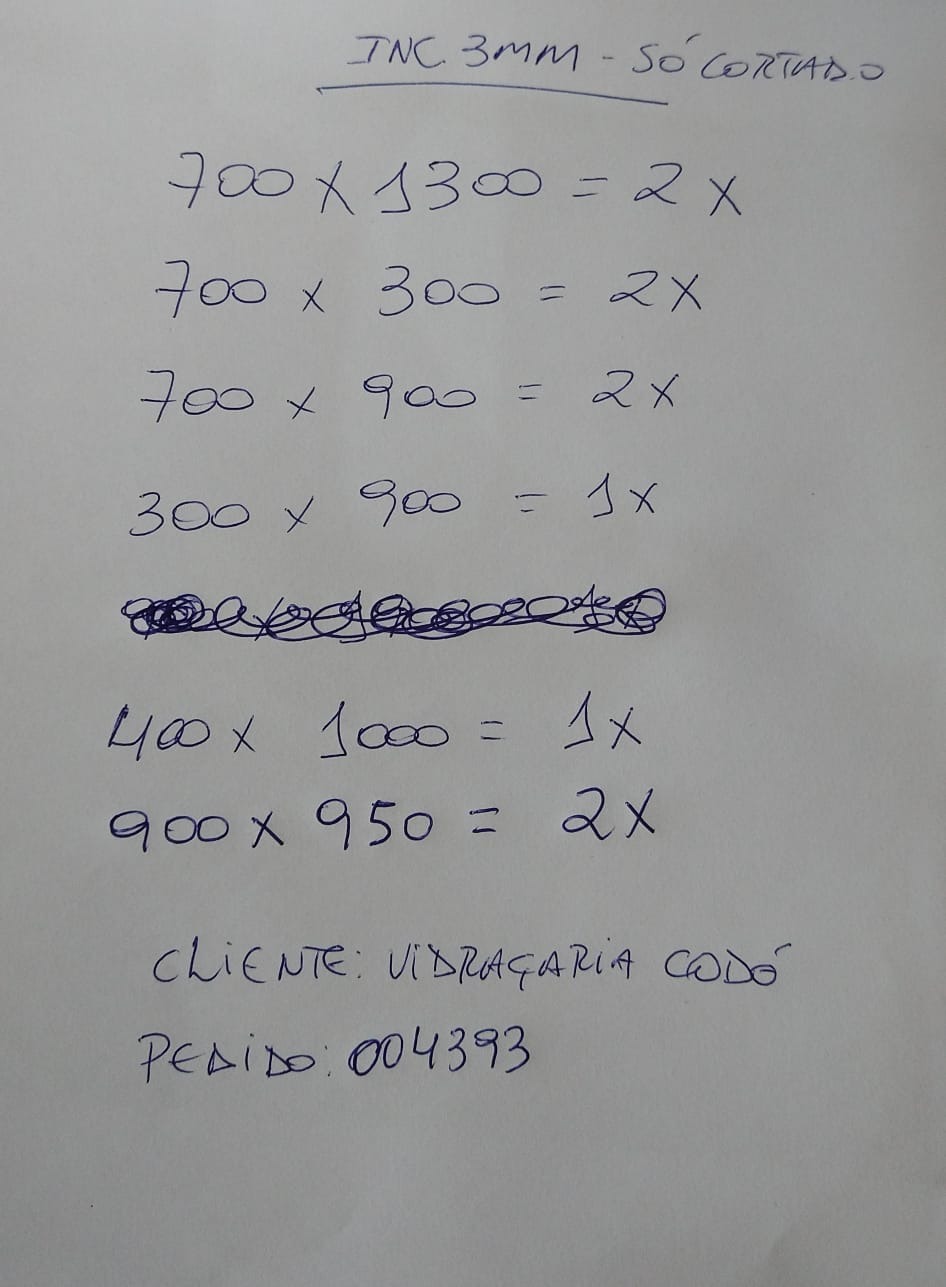 INC. 3MM - SÓ CORTADO
700 X 1300 = 2 X
700 x 300 = 2X
700 x 900 = 2X
300 x 900 = 1X
400 x 1000 = 1X
900 X 950 = 2X
CLIENTE: VIDRAÇARIA CODÓ
PEDIDO: 004393